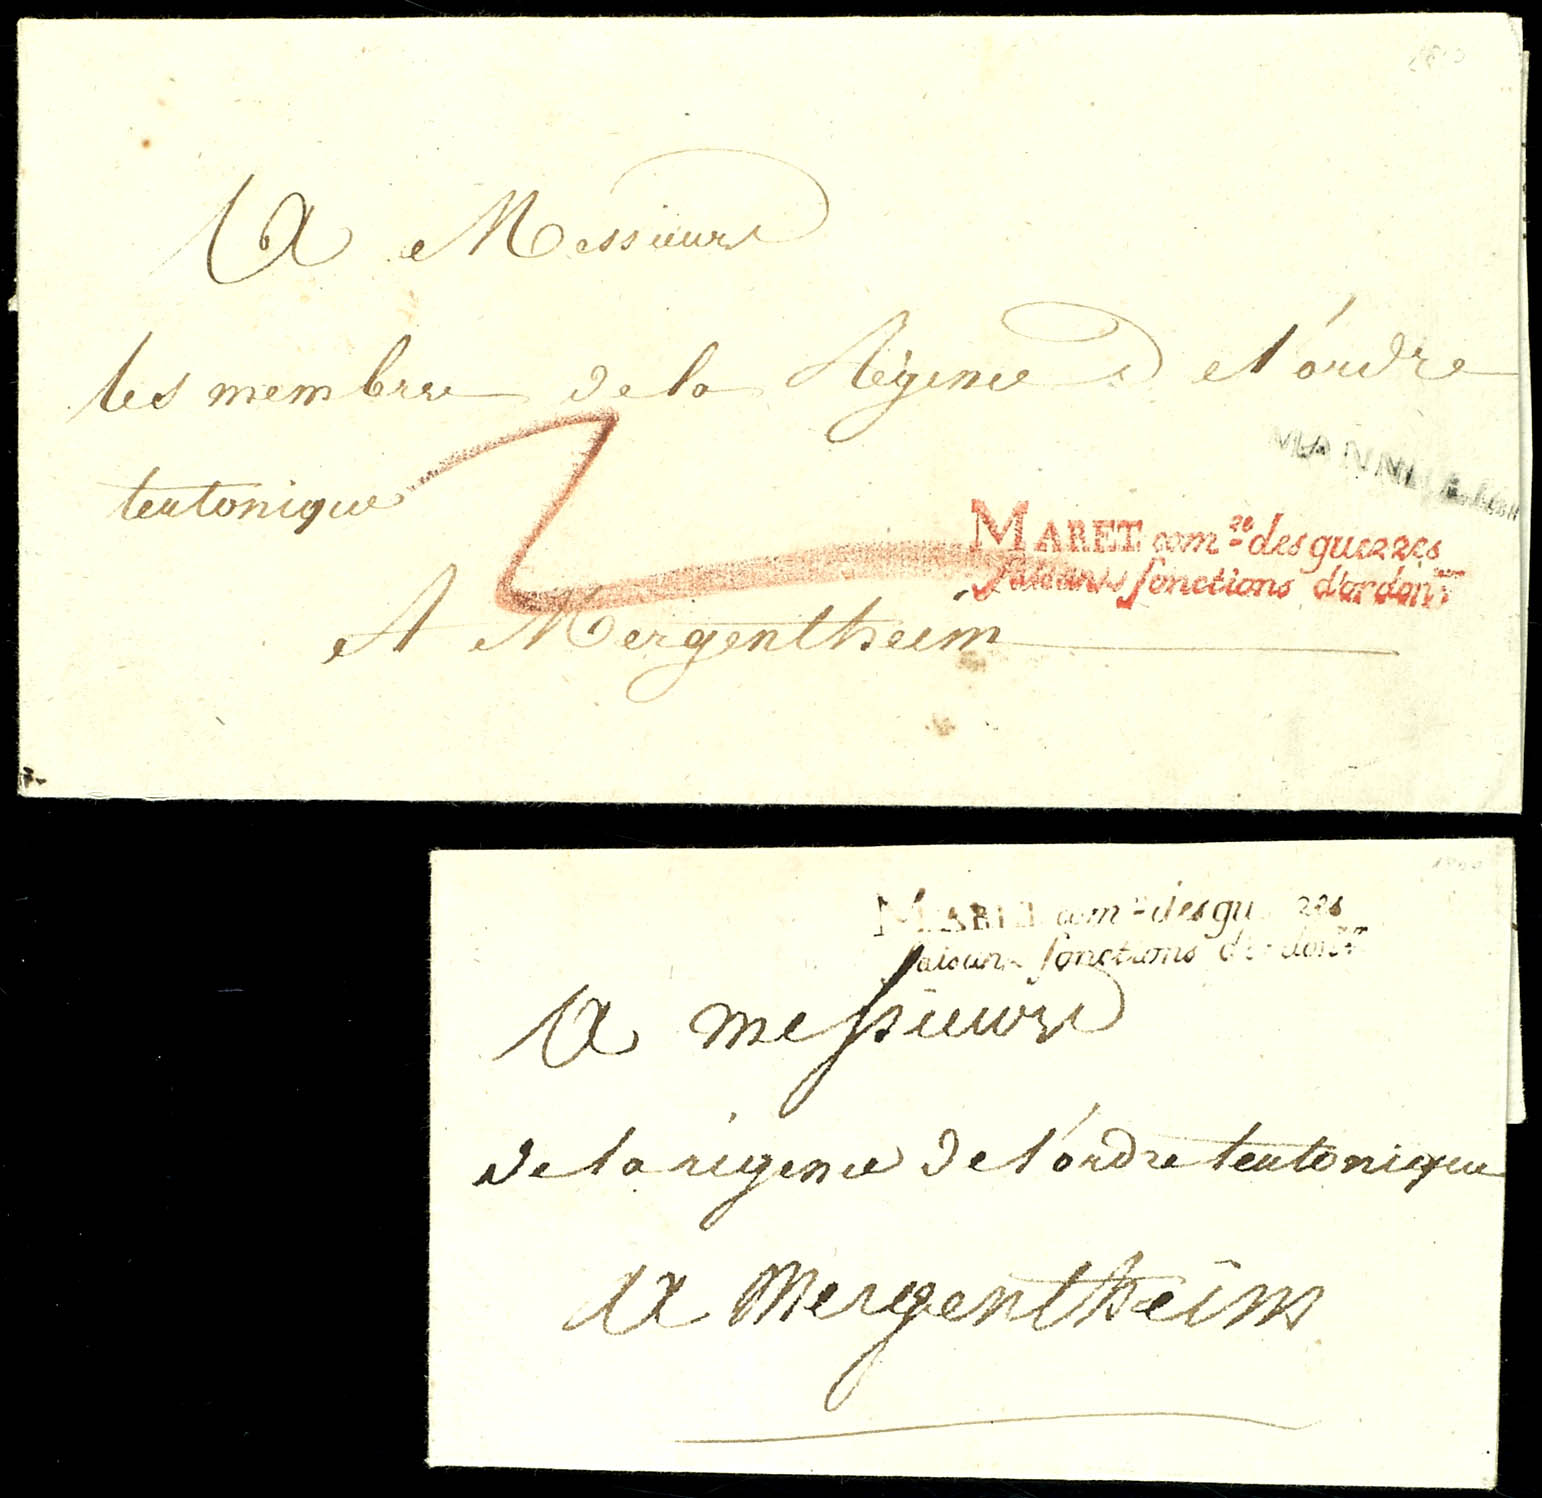 A Messieurs
les membres de la Régence de l'ordre
teutonique
MANNHEIM
MARET com.re des guerres
faisant fonctions d'ordon.r
A Mergentheim
MARET com.re des gu res
faisant fonctions d'ordon.r
A messieurs
de la régence de l'ordre teutonique
a Mergentheim